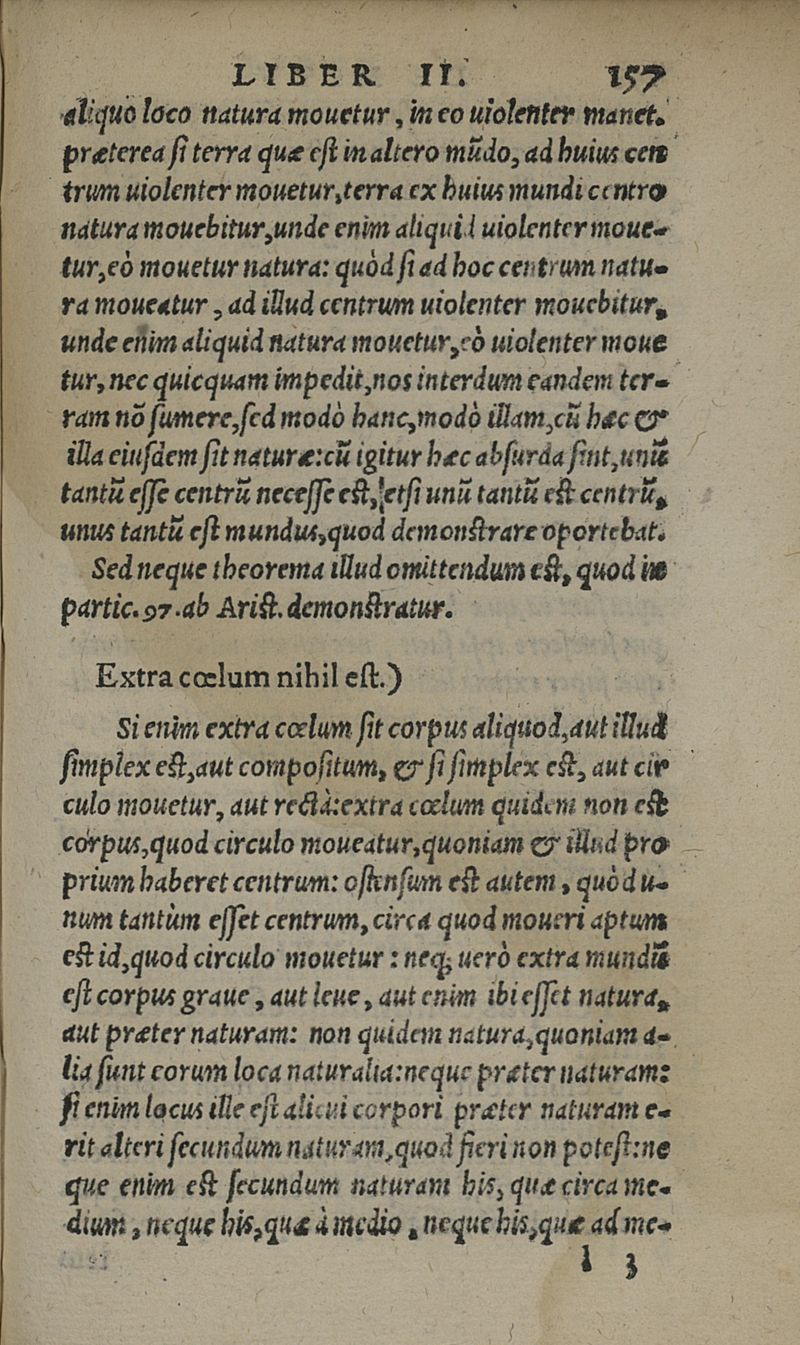 LIBER II. 157
aliquo loco natura mouetur, in eo uiolenter manet.
præterea ſi terra quæ eſt in altero mũdo, ad huius cen
trum uiolenter mouetur, terra ex huius mundi centro
natura mouebitur, unde enim aliquid uiolenter moue-
tur, eò mouetur natura: quòd ſi ad hoc centrum natu-
ra moueatur, ad illud centrum uiolenter mouebitur,
unde enim aliquid natura mouetur, eò uiolenter moue
tur, nec quicquam impedit, nos interdum eandem ter-
ram nõ ſumere, ſed modò hanc, modò illam, cũ hæc &
illa eiuſdem ſit naturæ: cũ igitur hæc abſurda ſint, unũ
tantũ eſſe centrũ neceſſe eſt, etſi unũ tantũ eſt centrũ,
unus tantũ eſt mundus, quod demonſtrare oportebat.
Sed neque theorema illud omittendum eſt, quod in
partic. 97. ab Ariſt. demonſtratur.
Extra cœlum nihil eſt.)
Si enim extra cœlum ſit corpus aliquod, aut illud
ſimplex eſt, aut compoſitum, & ſi ſimplex eſt, aut cir
culo mouetur, aut rectà: extra cœlum quidem non eſt
corpus, quod circulo moueatur, quoniam & illud pro
prium haberet centrum: oſtenſum eſt autem, quòd u-
num tantùm eſſet centrum, circa quod moueri aptum
eſt id, quod circulo mouetur: neq; uerò extra mundũ
eſt corpus graue, aut leue, aut enim ibi eſſet natura,
aut præter naturam: non quidem natura, quoniam a-
lia ſunt eorum loca naturalia: neque præter naturam:
ſi enim locus ille eſt alicui corpori præter naturam e-
rit alteri ſecundum naturam, quod fieri non poteſt: ne
que enim eſt ſecundum naturam his, quæ circa me-
dium, neque his, quæ à medio, neque his, quæ ad me-
l 3